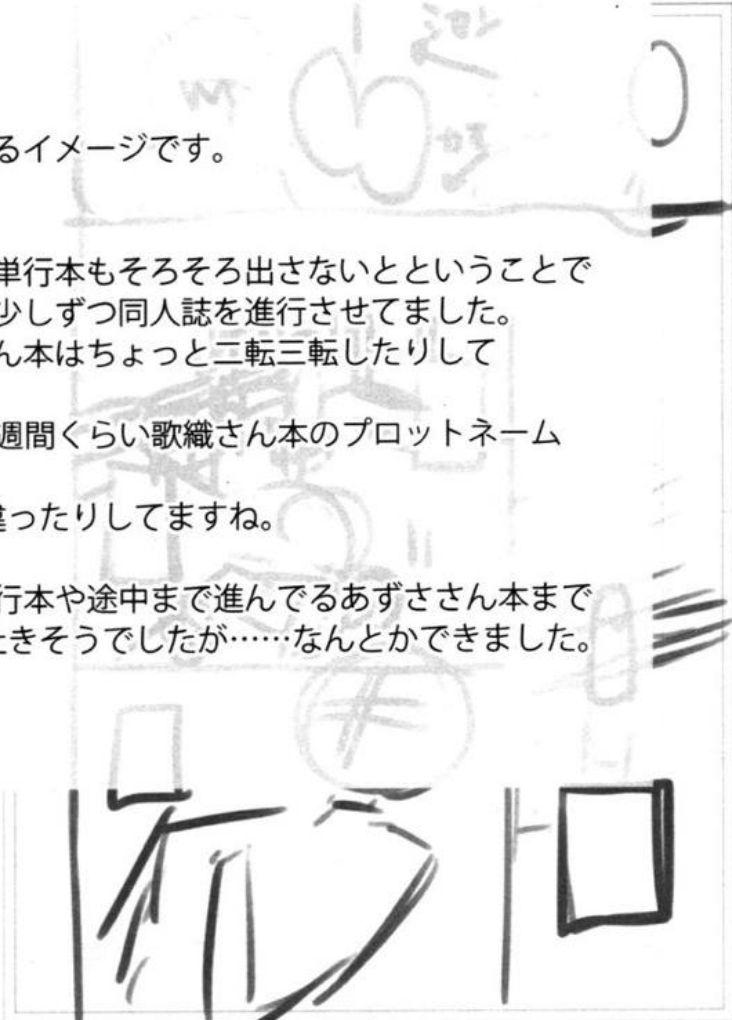 るイメージです。
単行本もそろそろ出さないとということで
少しずつ同人誌を進行させてました。
ん本はちょっと二転三転したりして
週間くらい歌織さん本のプロットネーム
ったりしてますね。
行本や途中まで進んでるあずささん本まで
きそうでしたが……なんとかできました。